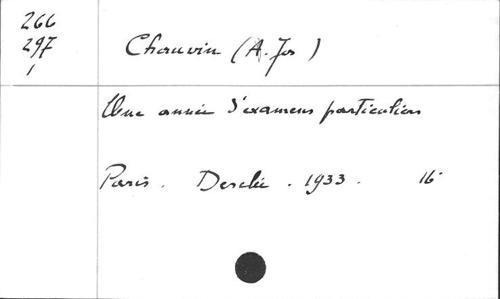 266
297
1
Chauvin (A. Jos)
Une année d'examens particuliers
Paris. Desclée. 1933. 16°